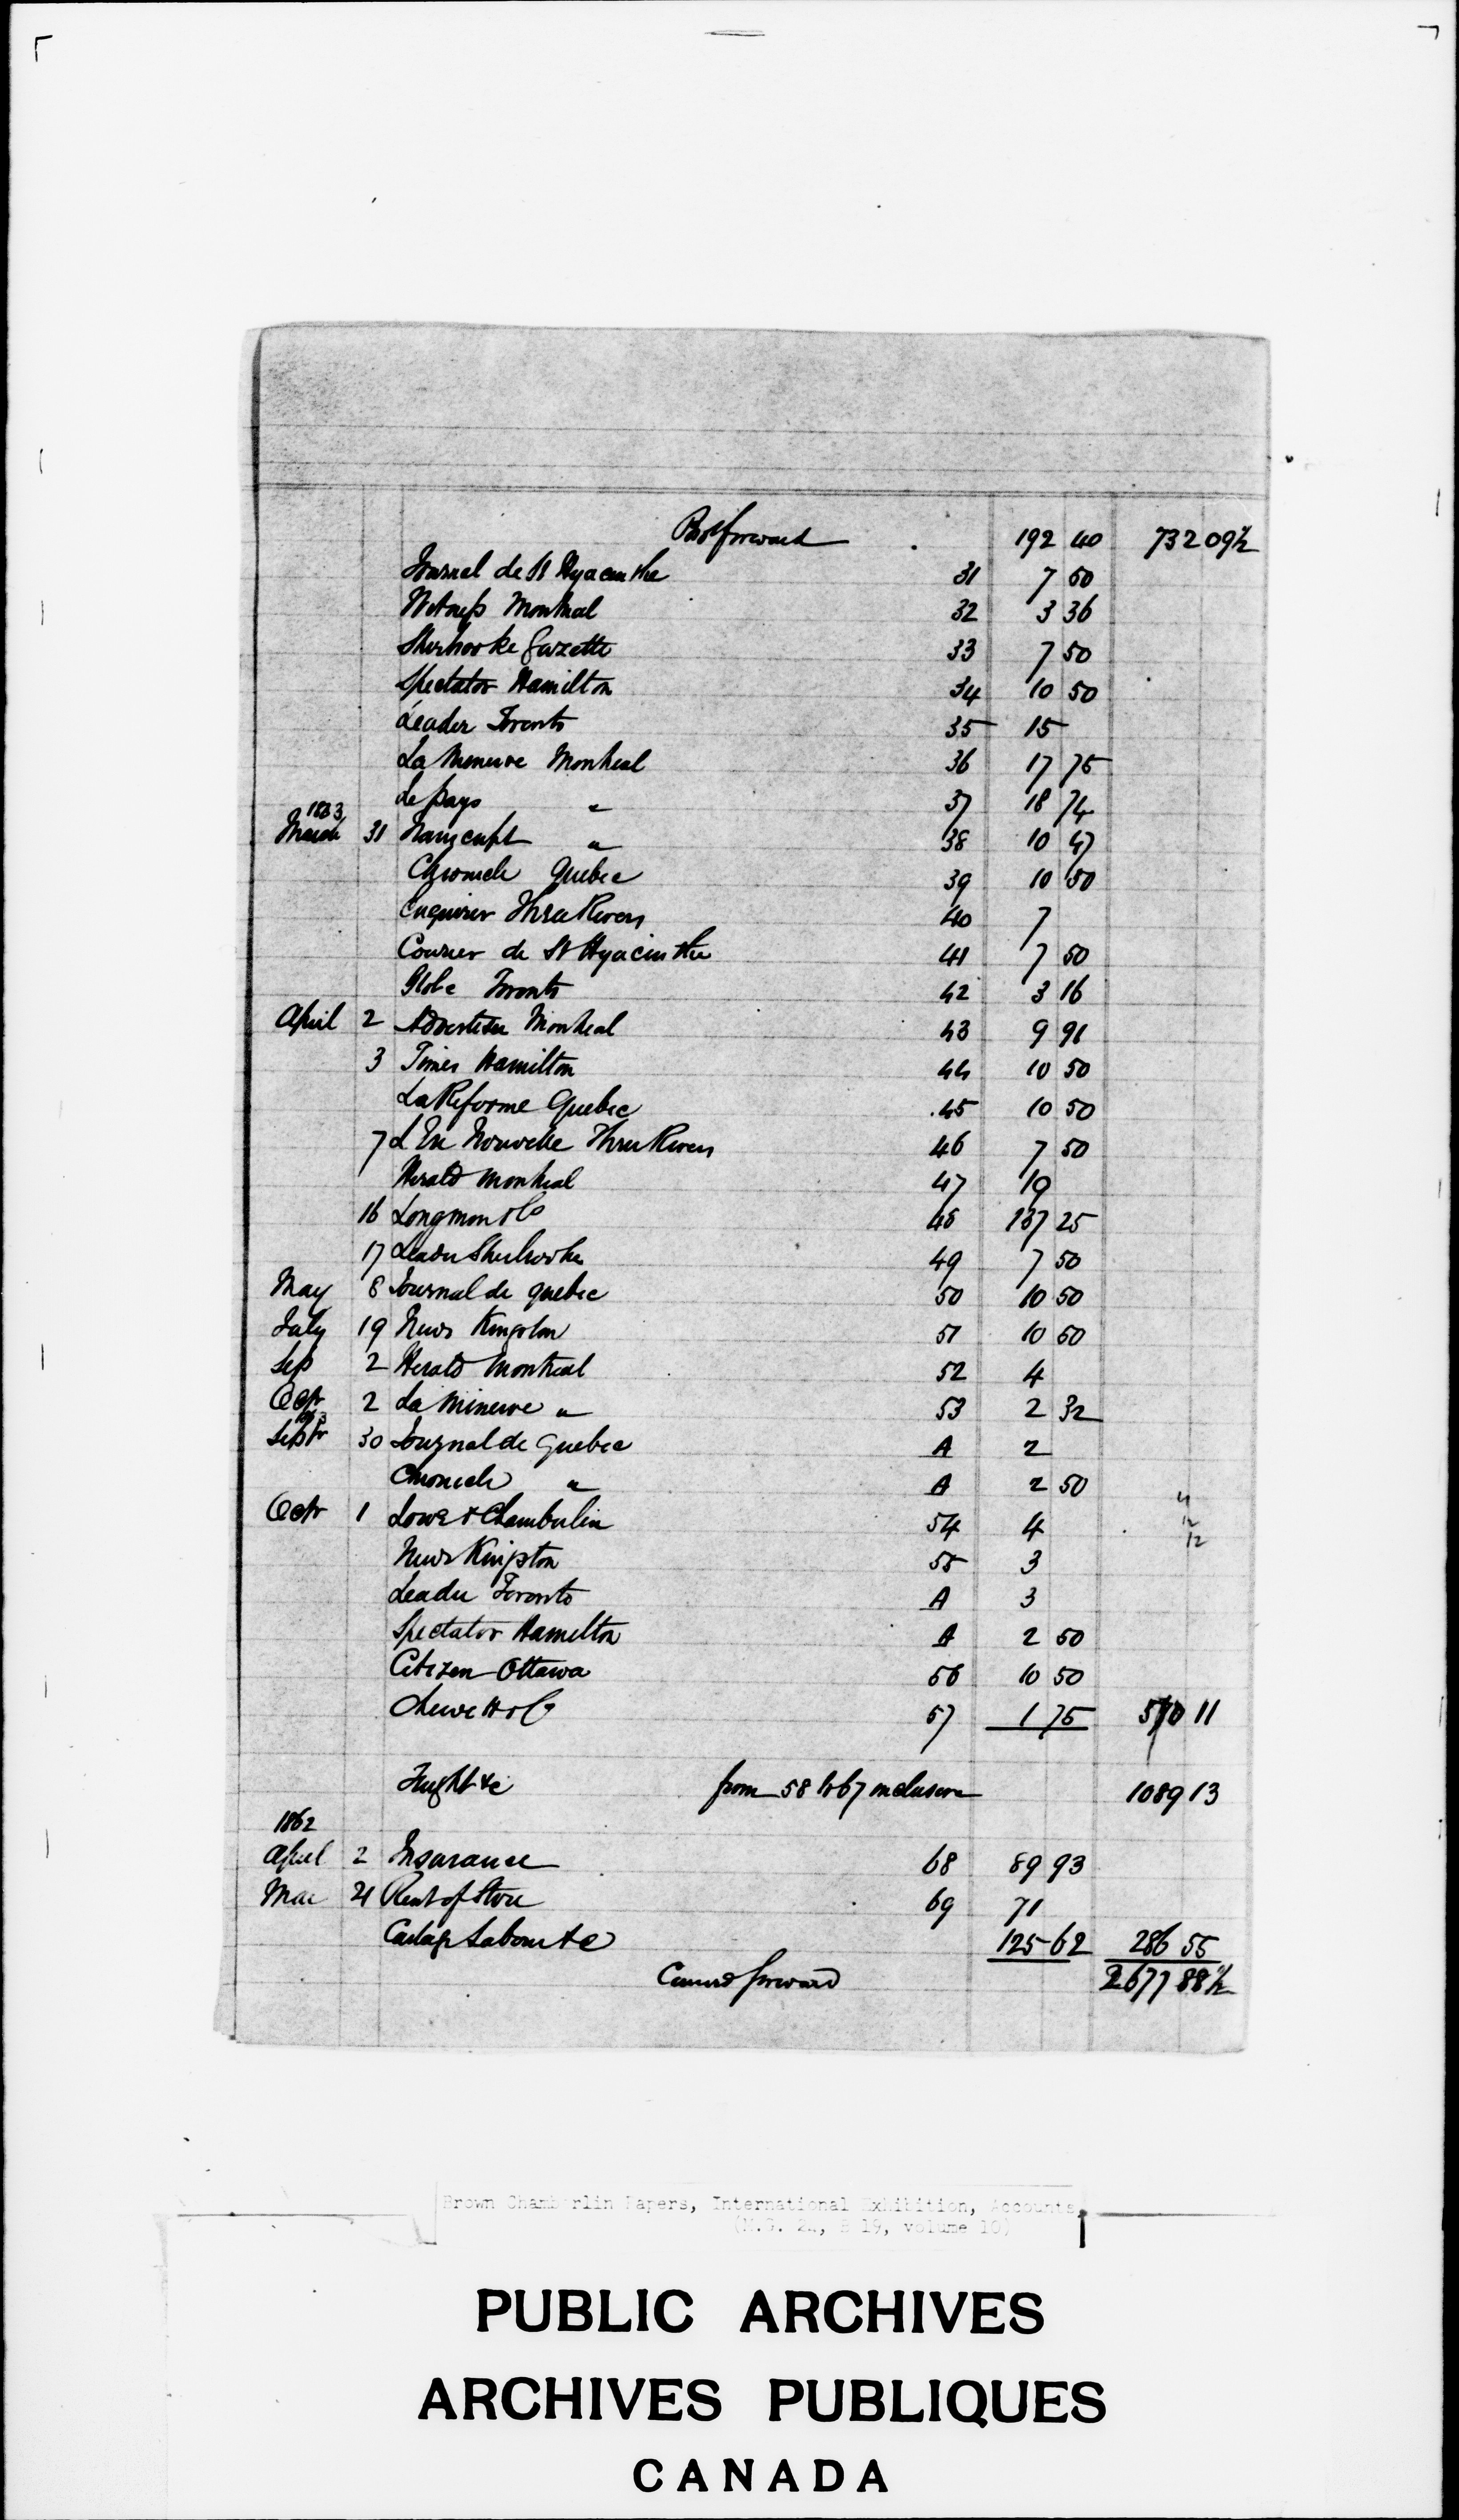 Brot forward 192 40 732 09½
Journal de St Hyacinthe 31 7 50
Witness Montreal 32 3 36
Sherbrooke Gazette 33 7 50
Spectator Hamilton 34 10 50
Leader Toronto 35 15
La Minerve Montreal 36 17 75
Le Pays " 37 18 74
1863
March 31 Transcript " 38 10 47
Chronicle Quebec 39 10 50
Enquirer Three Rivers 40 7
Courier de St Hyacinthe 41 7 50
Globe Toronto 42 3 16
April 2 Advertiser Montreal 43 9 91
3 Times Hamilton 44 10 50
La Reforme Quebec 45 10 50
7 L'Ere Nouvelle Three Rivers 46 7 50
Herald Montreal 47 19
16 Longmon & Co 48 137 25
17 Leader Sherbrooke 49 7 50
May 8 Journal de Quebec 50 10 50
July 19 News Kingston 51 10 50
Sep 2 Herald Montreal 52 4
Octr 2 La Minerve " 53 2 32
1863
Septr 30 Journal de Quebec A 2
Chronicle " A 2 50
Octr 1 Lowe & Chamberlin 54 4
News Kingston 55 3
Leader Toronto A 3
Spectator Hamilton A 2 50
Citizen Ottawa 56 10 50
Chewett & Co 57 1 75 570 11
Freight &c from 58 to 67 inclusive 1089 13
1862
April 2 Insurance 68 89 93
Mar 21 Rent of Store 69 71
Cartage Labour &c 125 62 286 55
Carried forward 2677 88½
Brown Chamberlin Papers, International Exhibition, Accounts,
(M.G. 24, B 19, volume 10)
PUBLIC ARCHIVES
ARCHIVES PUBLIQUES
CANADA